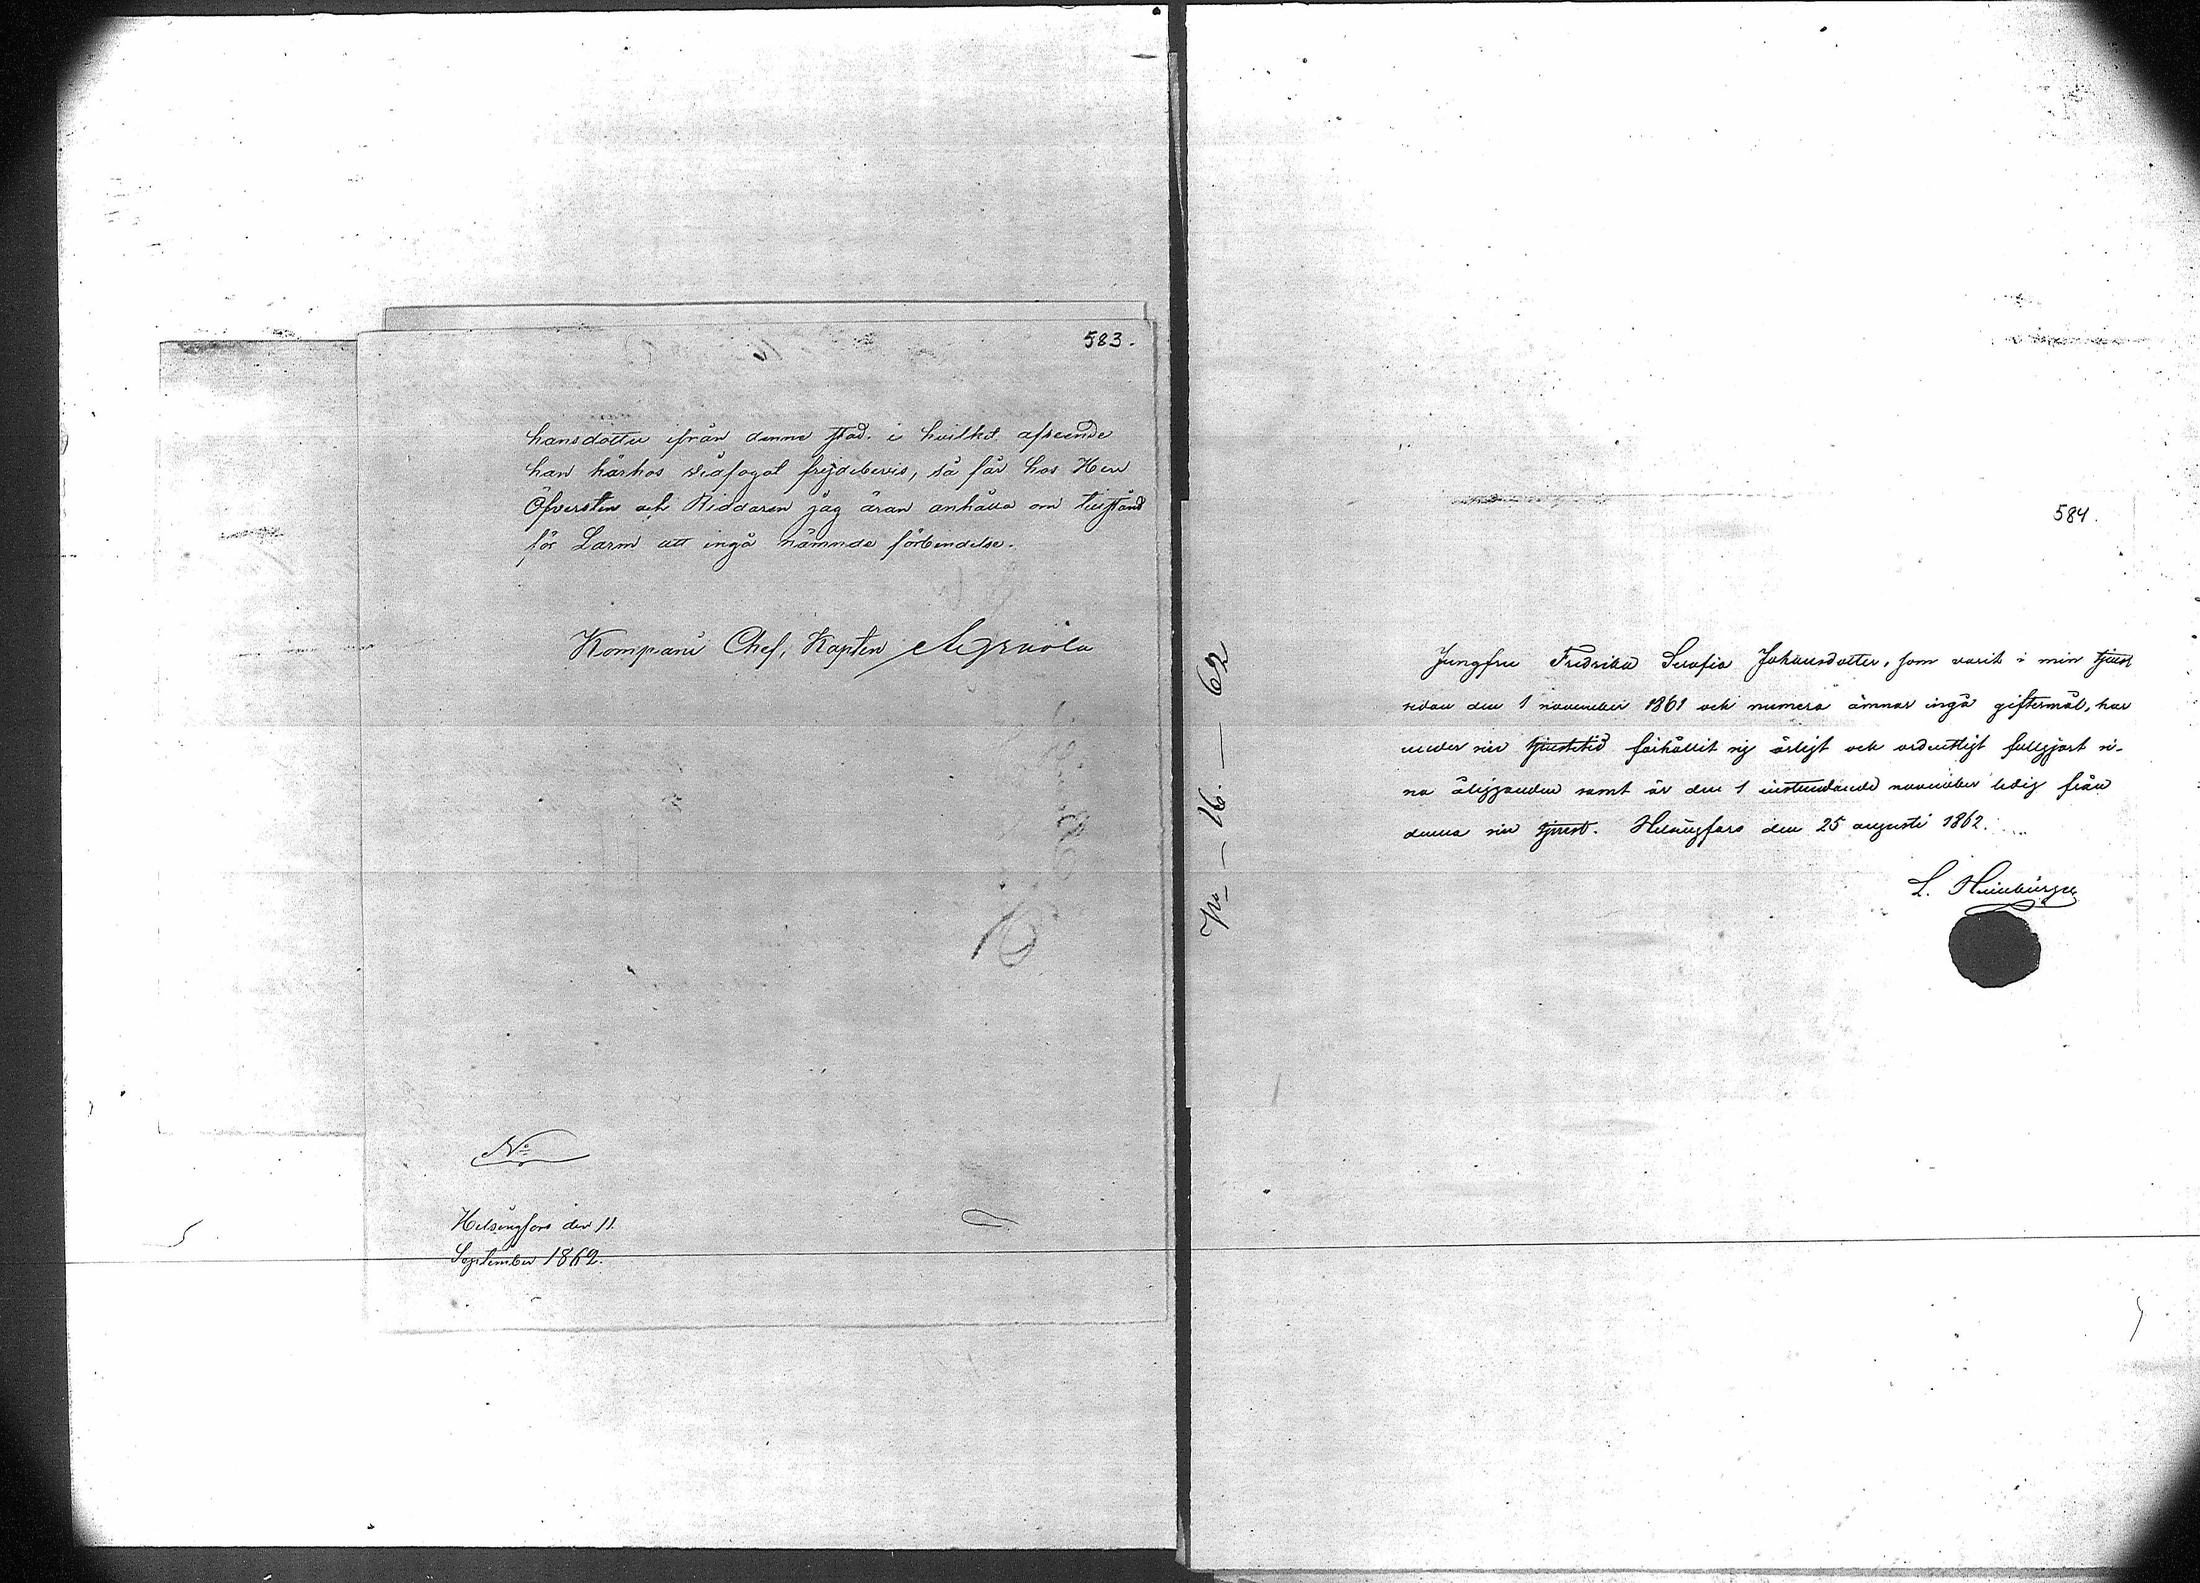 583.
hansdotter ifrån denne stad. i hvilket afseende
han härhos vidfogat frejdebevis, så får hos Herr
Öfversten och Riddaren jag äran anhålla om tillstånd
för Larm att ingå nämnde förbindelse.
Kompani Chef, Kapten
No
Helsingfors den 11.
September 1862.
16. — 62
584.
Jungfru Fredrika Serafia Johansdotter, som varit i min tjenst
sedan den 1 november 1861 och numera ämnar ingå giftermål, har
under sin tjenstetid förhållit sig ärligt och ordentligt fullgjort si-
na åligganden samt är den 1 instundande november ledig från
denna sin tjenst. Helsingfors den 25 augusti 1862.
L. Heimbürger